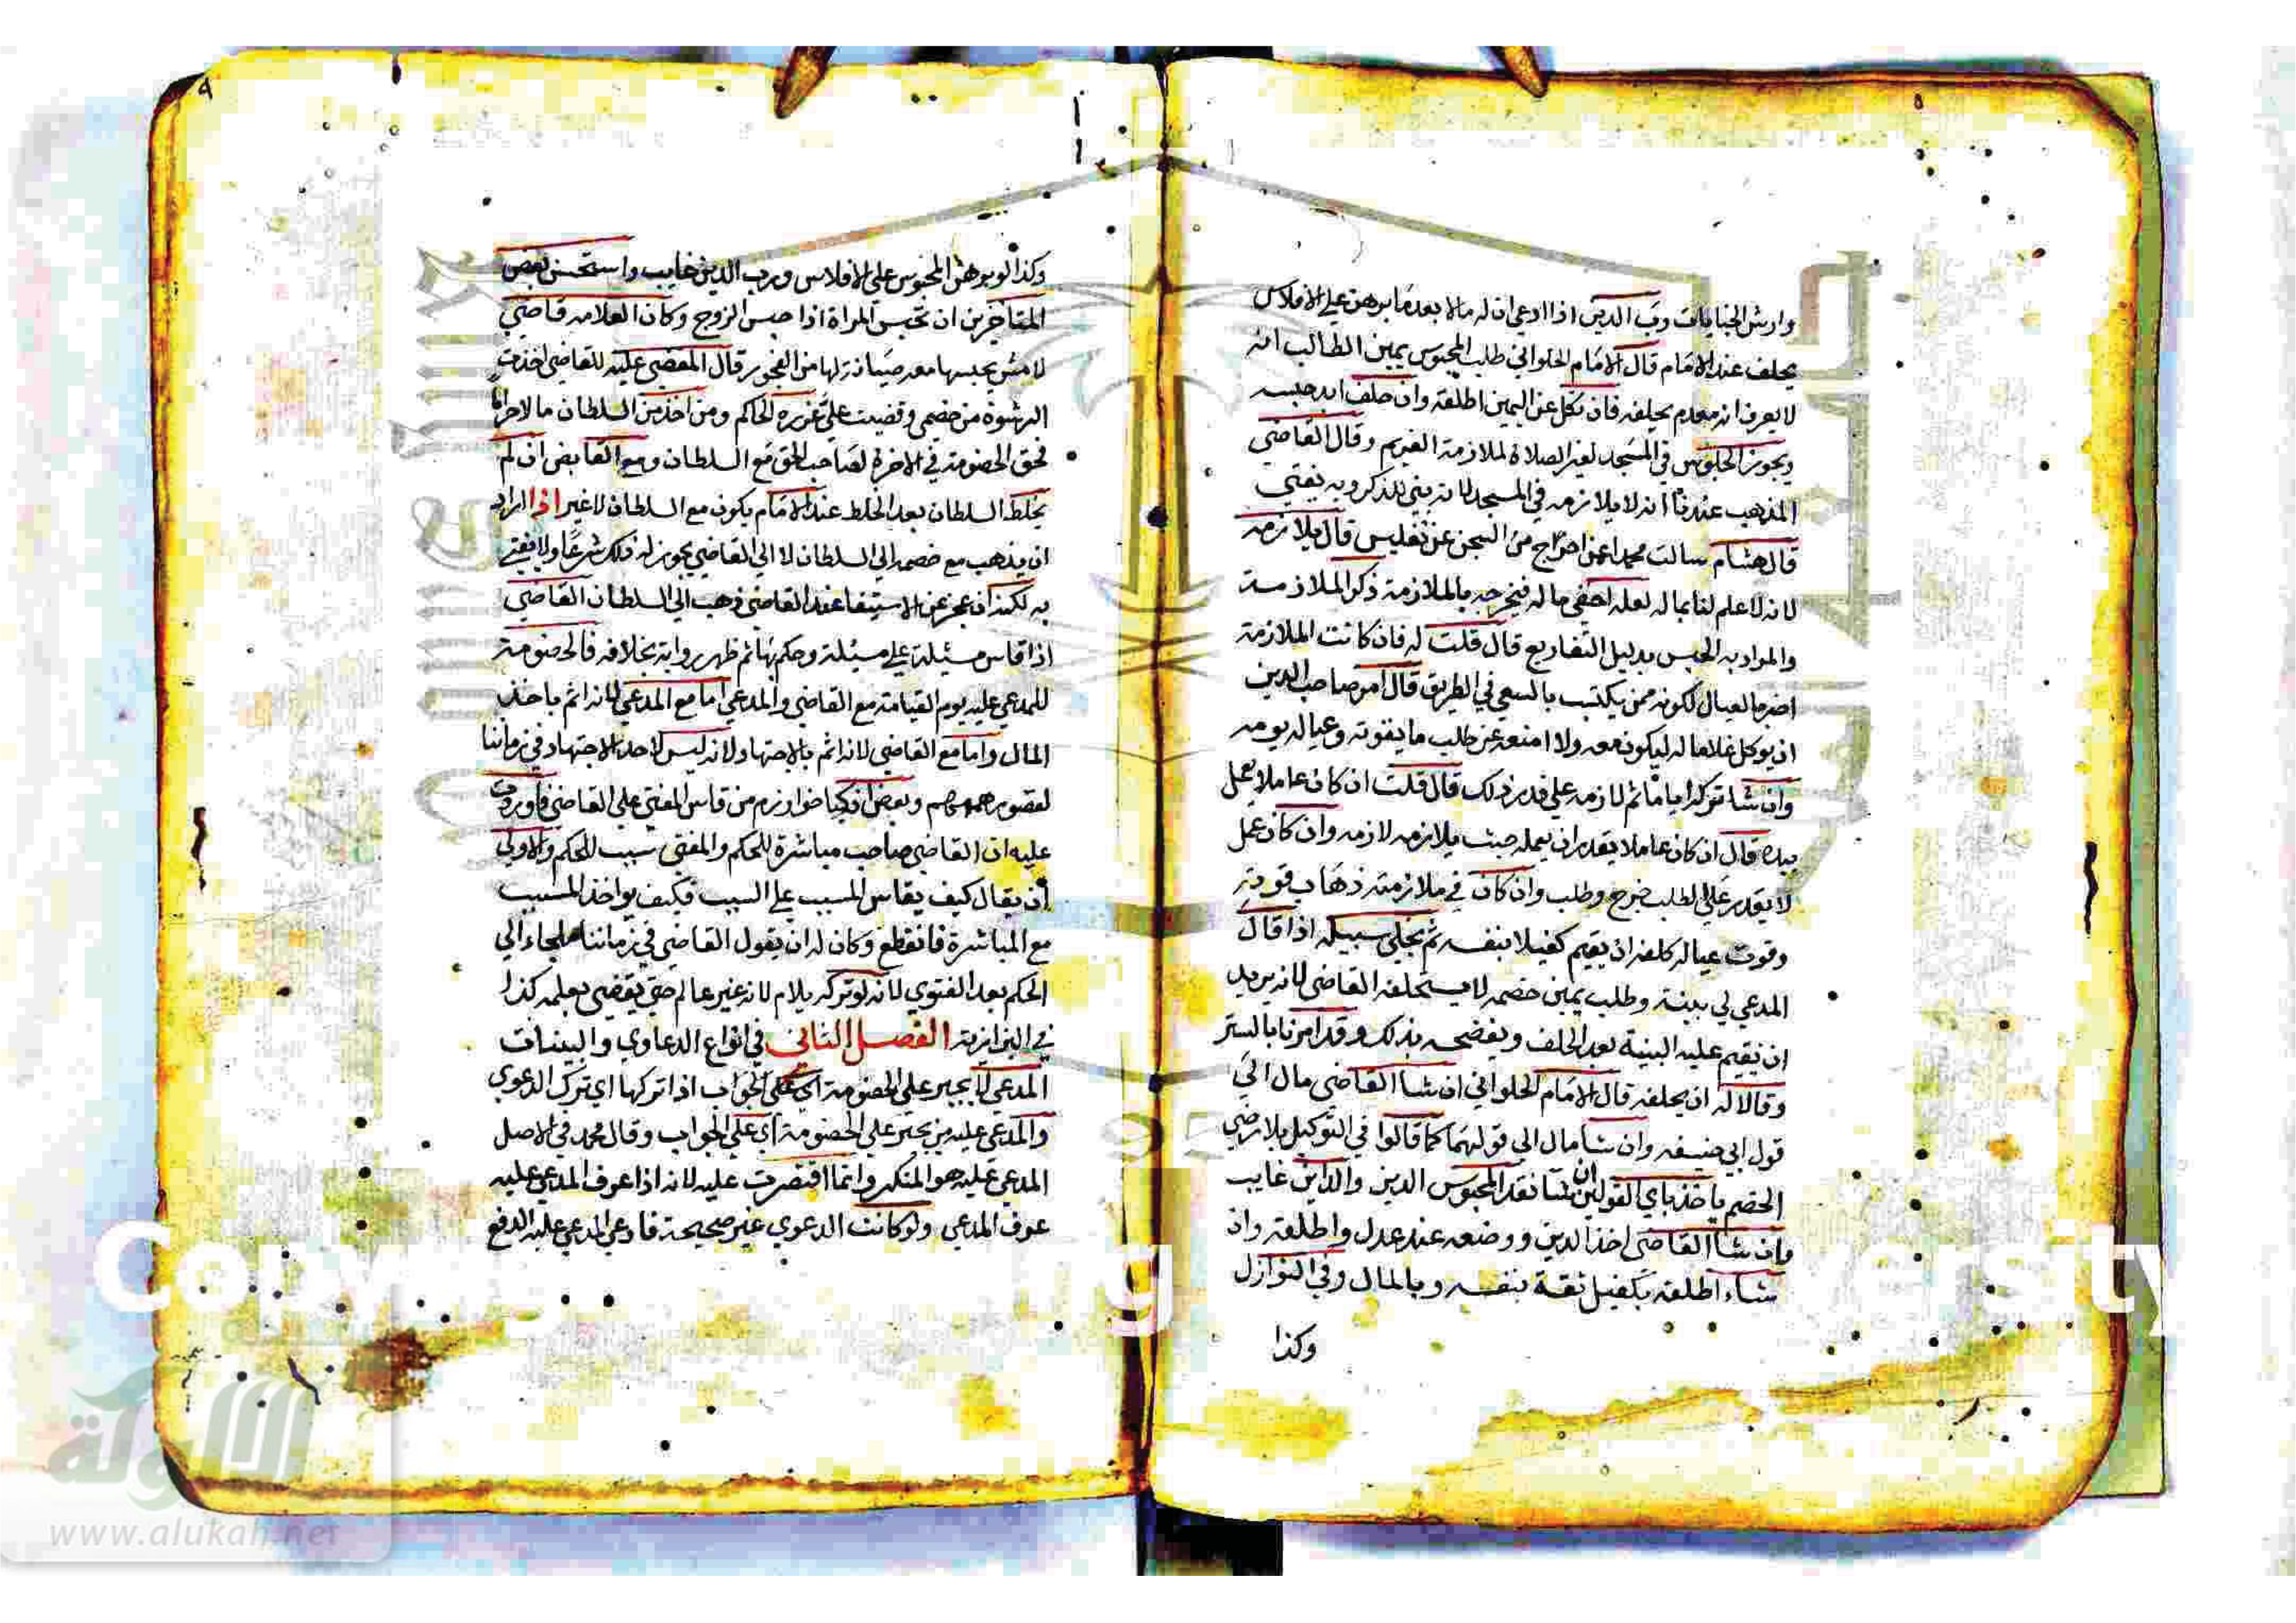 وارش الجنايات ورب الدين اذا ادعى ان له مالا بعد ما برهن على الافلاس
يحلف عند الامام قال الامام الحلواني طلب المحبوس يمين الطالب انه
لا يعرف انه معدم يحلفه فان نكل عن اليمين اطلقه وان حلف ابد حبسه
ويجوز الجلوس في المسجد لغير الصلاة لملازمة الغريم وقال القاضي
المذهب عندنا انه لا يلازمه في المسجد لانه بني للذكر وبه يفتي
قال هشام سالت محمدا عمن اخرج من السجن عن تفليس قال يلازمه
لانه لا علم لنا بماله لعله اخفي ماله فيخرجه بالملازمة ذكر الملازمة
والمراد به الحبس بدليل التفاريع قال قلت له فان كانت الملازمة
اضر بالعيال لكونه ممن يكتسب بالسعي في الطريق قال امر صاحب الدين
ان يوكل غلاما له ليكون معه ولا امنعه عن طلب ما يقوته وعياله يومه
وان شا تركه اياما ثم لازمه على قدر ذلك قال قلت ان كان عاملا يعمل
بيده قال ان كان عاملا يقدر ان يعمله حيث يلازمه لازمه وان كان عمل
لا يقدر على الطلب خرج وطلب وان كان في ملازمته ذهاب قوته
وقوت عياله كلفه ان يقيم كفيلا بنفسه ثم يخلي سبيله اذا قال
المدعي لي بينة وطلب يمين خصمه لا يستحلفه القاضي لانه يريد
ان يقيم عليه البينة بعد الحلف ويفضحه بذلك وقد امرنا بالستر
وقالا له ان يحلفه قال الامام الحلواني ان شاا القاضي مال الي
قول ابي حنيفه وان شا مال الي قولهما كما قالوا في التوكيل بلا رضي
الخصم ياخذ باي القولين ان شا نقد المحبوس الدين والداين غايب
وان شاا القاضي اخذ الدين ووضعه عند عدل واطلقه وان
شاء اطلقه بكفيل ثقة بنفسه وبالمال وفي النوازل
وكذا
٩
وكذا لو برهن المحبوس على الافلاس ورب الدين غايب واستحسن بعض
المتاخرين ان تحبس المراة اذا حبس الزوج وكان العلامه قاضي
لامش يحبسها معه صيانة لها من الفجور قال المقضي عليه للقاضي اخذت
الرشوة من خصمي وقضيت علي عزره الحاكم ومن اخذ من السلطان مالا حراما
فحق الخصومة في الاخرة لصاحب الحق مع السلطان ومع القابض ان لم
يخلط السلطان بعد الخلط عند الامام يكون مع السلطان لا غير اذا اراد
ان يذهب مع خصمه الي السلطان لا الي القاضي يجوز له ذلك شرعا ولا يفتي
به لكنه ان عجز عن الاستيفا عند القاضي ذهب الي السلطان القاضي
اذا قاس مسئلة علي مسئلة وحكم بها ثم ظهر رواية بخلافه فالخصومة
للمدعي عليه يوم القيامة مع القاضي والمدعي اما مع المدعي لانه اثم باخذ
المال واما مع القاضي لانه اثم بالاجتهاد لانه ليس لاحد الاجتهاد في زماننا
وبعض اذكيا خوارزم من قاس المفتي علي القاضي فاوردت
عليه ان القاضي صاحب مباشرة للحكم والمفتي سبب للحكم والاولي
ان يقال كيف يقاس المسبب علي السبب فكيف يواخذ المسبب
مع المباشرة فانقطع وكان له ان يقول القاضي في زماننا ملجاء الي
الحكم بعد الفتوي لانه لو تركه يلام لانه غير عالم حتي يقضي بعلمه كذا
في البزازية الفصل الثاني في انواع الدعاوي والبينات
المدعي لا يجبر علي الخصومة اي علي الجواب اذا تركها اي ترك الدعوي
والمدعي عليه من يجبر علي الخصومة اي علي الجواب وقال محمد في الاصل
المدعي عليه هو المنكر وانما اقتصرت عليه لانه اذا عرف المدعي عليه
عرف المدعي ولو كانت الدعوي غير صحيحة فادعي المدعي عليه الدفع
الألوكة
www.alukah.net